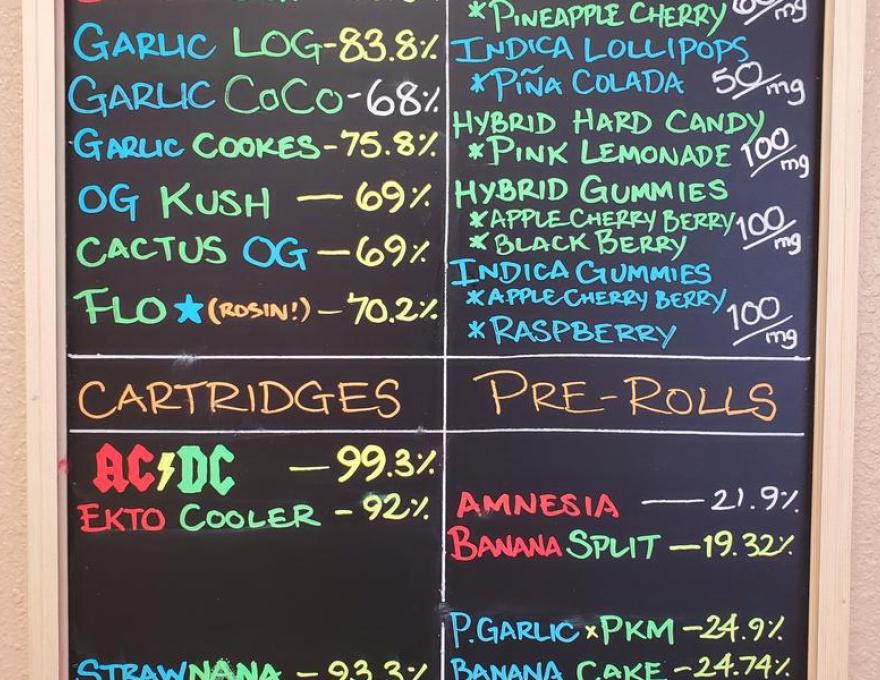 GARLIC LOG-83.8%
GARLIC COCO-68%
GARLIC COOKES-75.8%
OG KUSH — 69%
CACTUS OG — 69%
FLO ★ (ROSIN!) — 70.2%
*PINEAPPLE CHERRY mg
INDICA LOLLIPOPS
*PIÑA COLADA 50/mg
HYBRID HARD CANDY
*PINK LEMONADE 100/mg
HYBRID GUMMIES
*APPLE CHERRY BERRY
*BLACK BERRY 100/mg
INDICA GUMMIES
*APPLE CHERRY BERRY
*RASPBERRY 100/mg
CARTRIDGES
AC⚡DC — 99.3%
EKTO COOLER - 92%
STRAWNANA - 93.3%
PRE-ROLLS
AMNESIA — 21.9%
BANANA SPLIT — 19.32%
P.GARLIC x PKM - 24.9%
BANANA CAKE - 24.74%